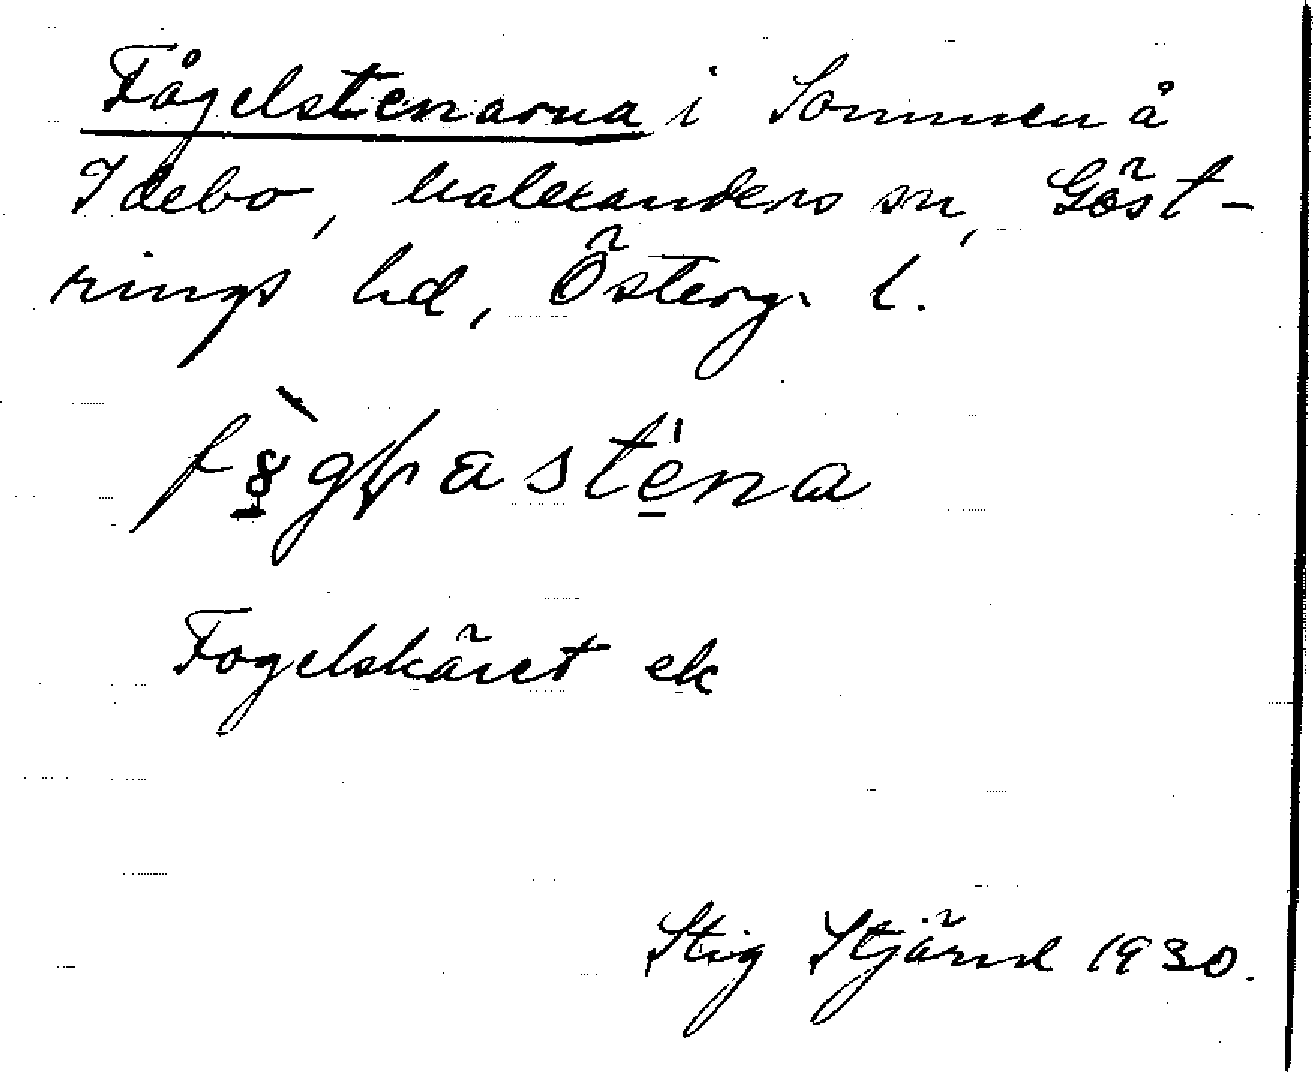 Fågelstenarna i Sommen å
Idebo, Malexanders sn, Göst-
rings hd, Österg. l.
Fogelskäret ek
Stig Stjärnd 1930.